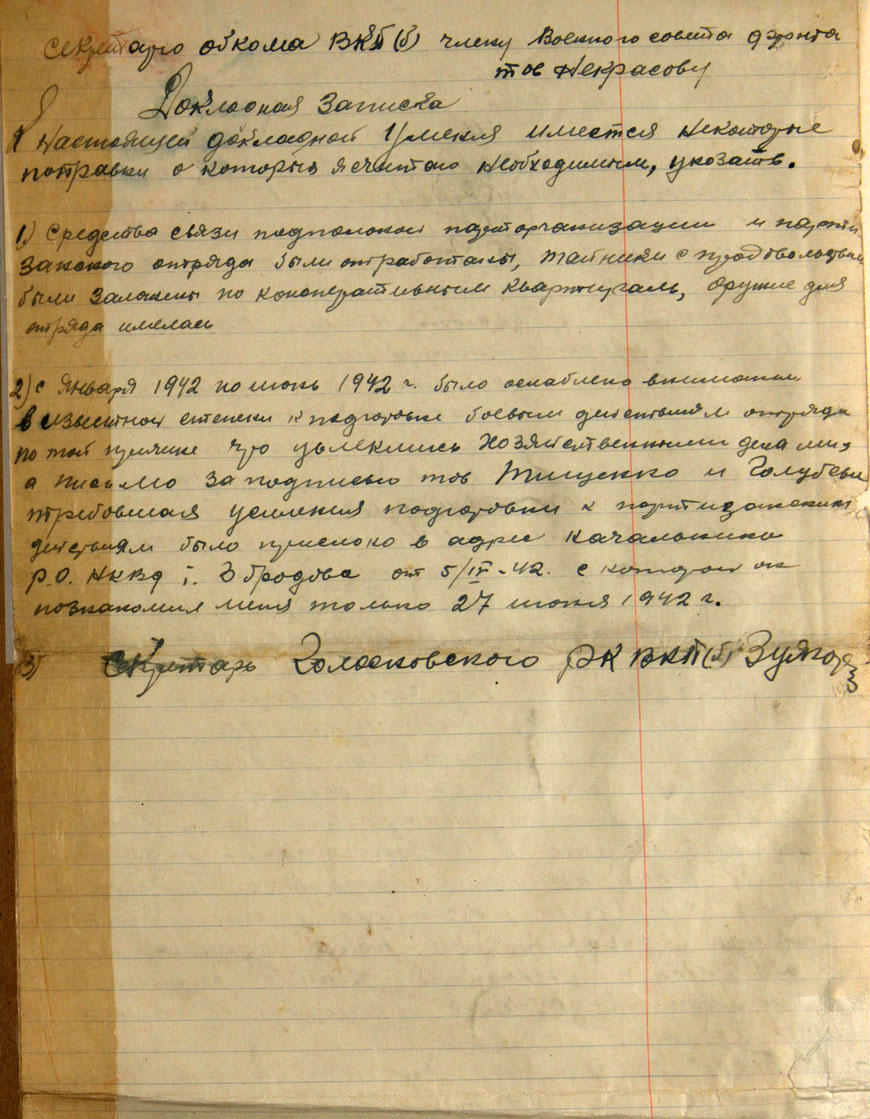 Секретарю обкома ВКП(б) члену Военного совета фронта
тов Некрасову
Докладная Записка
К настоящей докладной У меня имеется некоторые
поправки о которых я считаю необходимым, указать.
1) Средства связи подпольной парторганизации и парти
занского отряда были отработаны, тайники с продовольствием
были заложены по кооперативным квартирам, оружие для
отряда имелась
2) С января 1942 по июнь 1942 г. было ослаблено внимание
в известной степени к подготовке боевым действиям отряда
по той причине что увлеклись хозяйственными делами,
а письмо за подписью тов Тищенко и Голубева
требовавшая усиления подготовки к партизанским
действиям было прислано в адрес начальника
Р.О. НКВД т. Бродова от 5/IV-42. с которым он
познакомил меня только 27 июня 1942 г.
3) Секретарь РК ВКП(б)